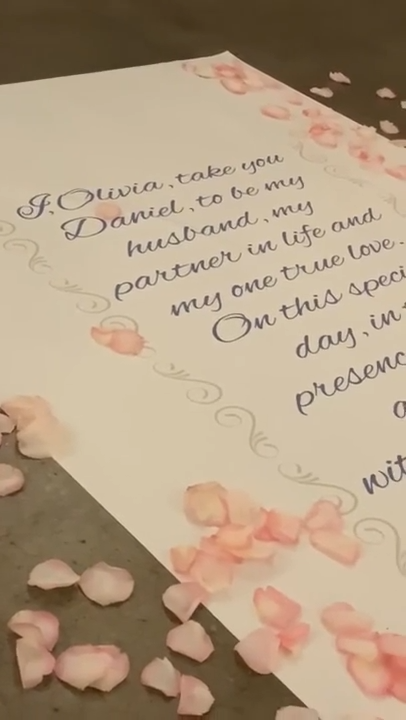 I, Olivia, take you
Daniel, to be my
husband, my
partner in life and
my one true love.
On this
day, in